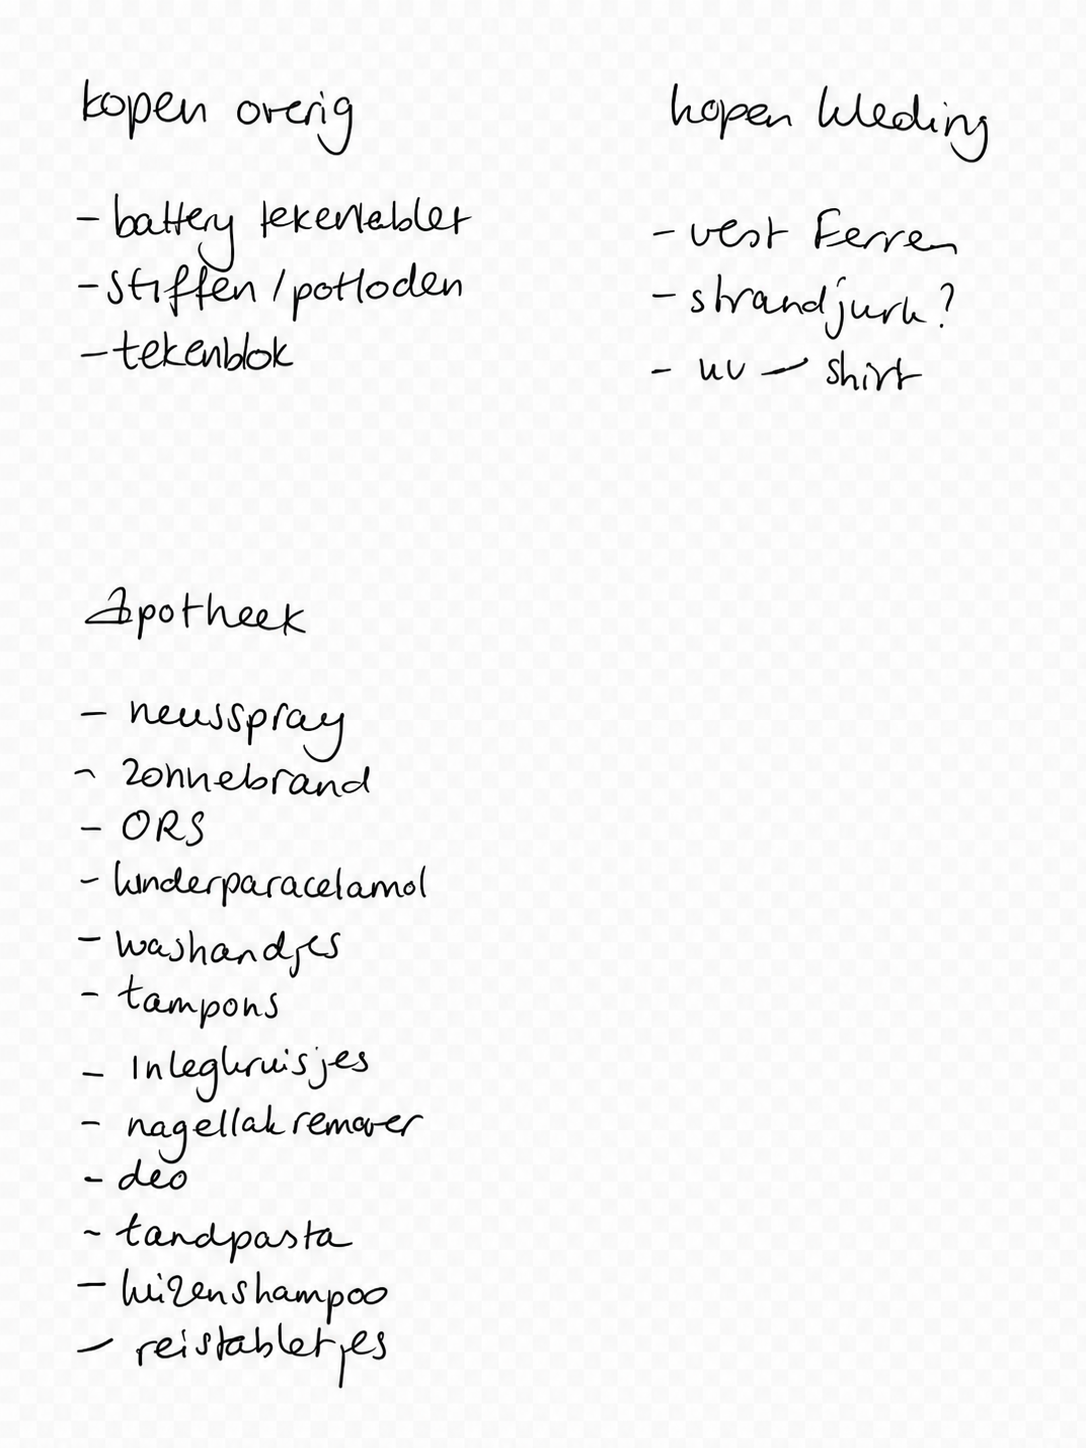 kopen overig
- battery tekentablet
- stiften / potloden
- tekenblok
kopen kleding
- vest Ferren
- strandjurk?
- uv - shirt
Apotheek
- neusspray
- zonnebrand
- ORS
- kinderparacetamol
- washandjes
- tampons
- Inlegkruisjes
- nagellak remover
- deo
- tandpasta
- luizenshampoo
- reistabletjes